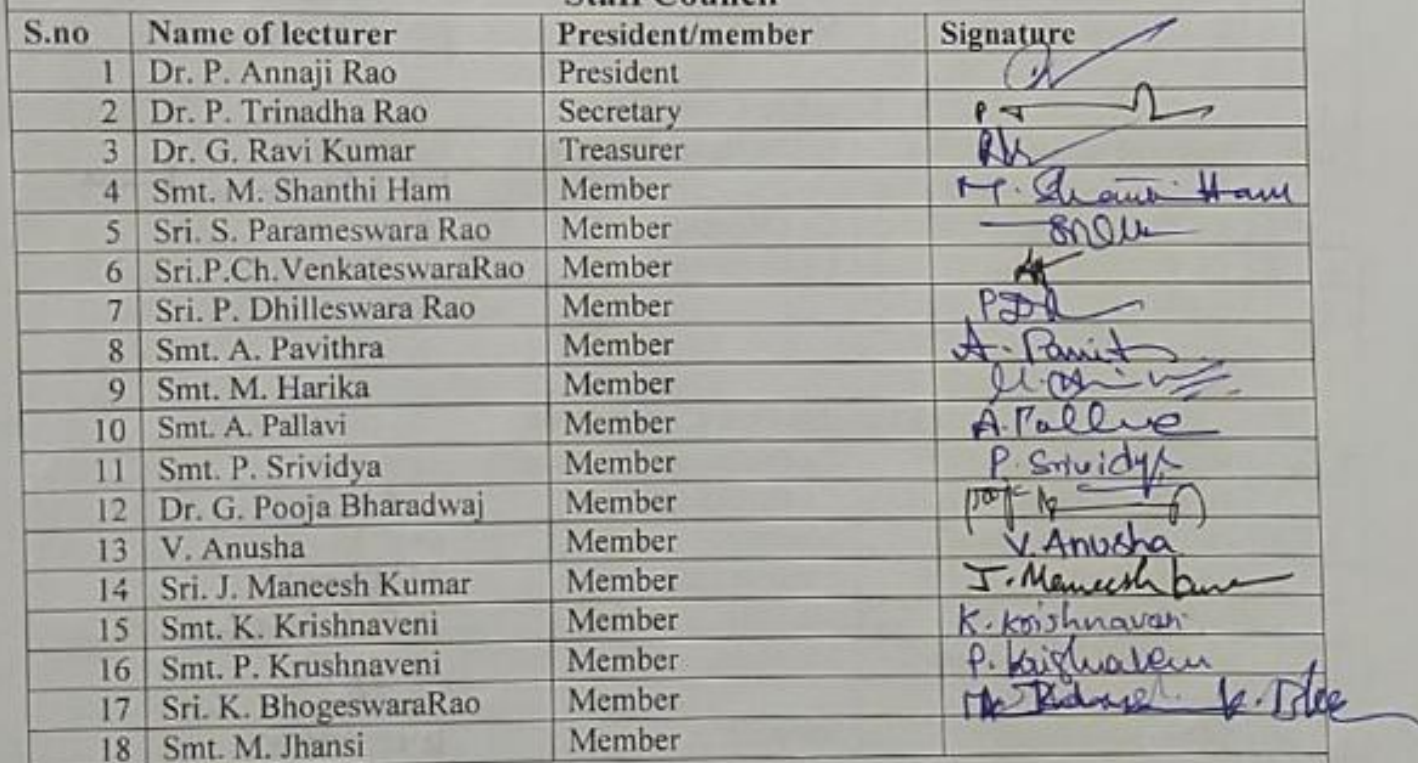 Staff Council
S.no Name of lecturer President/member Signature
1 Dr. P. Annaji Rao President
2 Dr. P. Trinadha Rao Secretary P
3 Dr. G. Ravi Kumar Treasurer
4 Smt. M. Shanthi Ham Member M. Shanti Ham
5 Sri. S. Parameswara Rao Member
6 Sri.P.Ch.VenkateswaraRao Member
7 Sri. P. Dhilleswara Rao Member
8 Smt. A. Pavithra Member
9 Smt. M. Harika Member
10 Smt. A. Pallavi Member
11 Smt. P. Srividya Member P. Srividya
12 Dr. G. Pooja Bharadwaj Member
13 V. Anusha Member V. Anusha
14 Sri. J. Maneesh Kumar Member J. Maneesh
15 Smt. K. Krishnaveni Member K. Krishnaveni
16 Smt. P. Krushnaveni Member
17 Sri. K. BhogeswaraRao Member
18 Smt. M. Jhansi Member